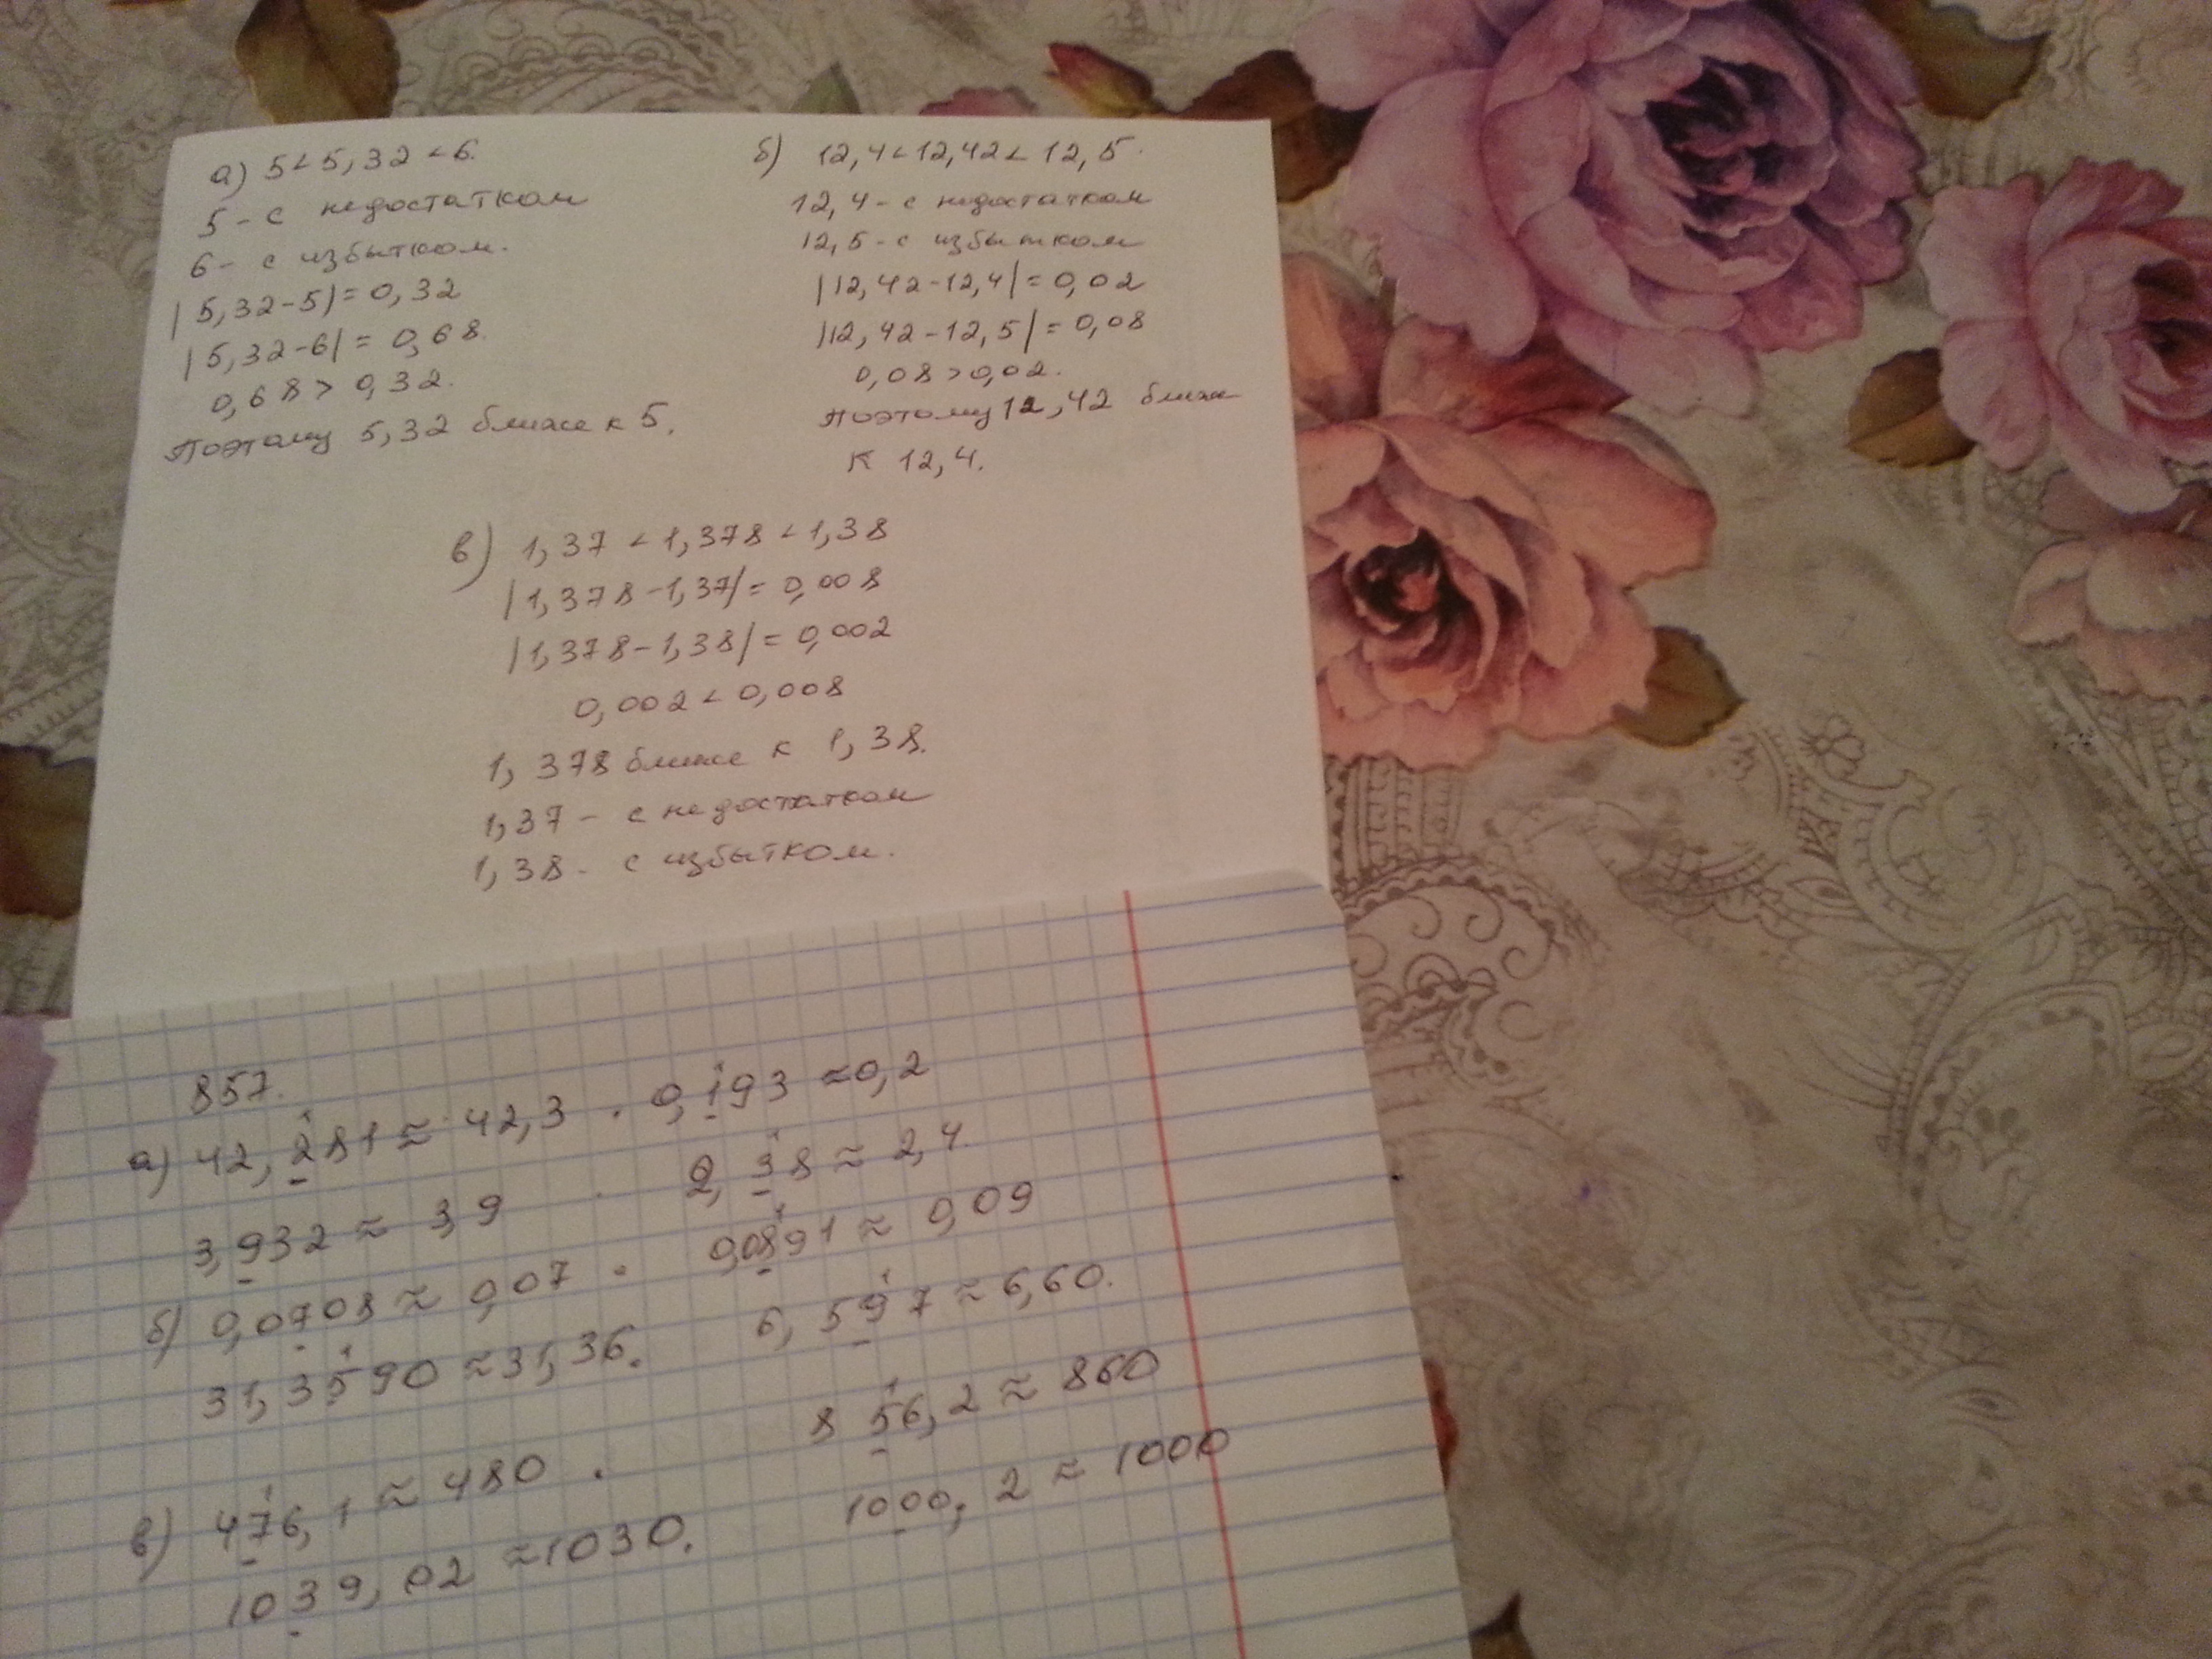 а) 5 < 5,32 < 6.
5 - с недостатком
6 - с избытком.
|5,32-5| = 0,32
|5,32-6| = 0,68.
0,68 > 0,32.
Поэтому 5,32 ближе к 5.
б) 12,4 < 12,42 < 12,5.
12,4 - с недостатком
12,5 - с избытком
|12,42-12,4| = 0,02
|12,42-12,5| = 0,08
0,08 > 0,02.
Поэтому 12,42 ближе
к 12,4.
в) 1,37 < 1,378 < 1,38
|1,378-1,37| = 0,008
|1,378-1,38| = 0,002
0,002 < 0,008
1,378 ближе к 1,38.
1,37 - с недостатком
1,38 - с избытком.
857.
а) 42,281 ≈ 42,3 . 0,193 ≈ 0,2
3,932 ≈ 3,9 . 2,38 ≈ 2,4.
б) 0,0708 ≈ 0,07 . 0,0891 ≈ 0,09
31,3590 ≈ 31,36. 6,597 ≈ 6,60.
в) 476,1 ≈ 480 . 856,2 ≈ 860
1039,02 ≈ 1030. 1000,2 ≈ 1000